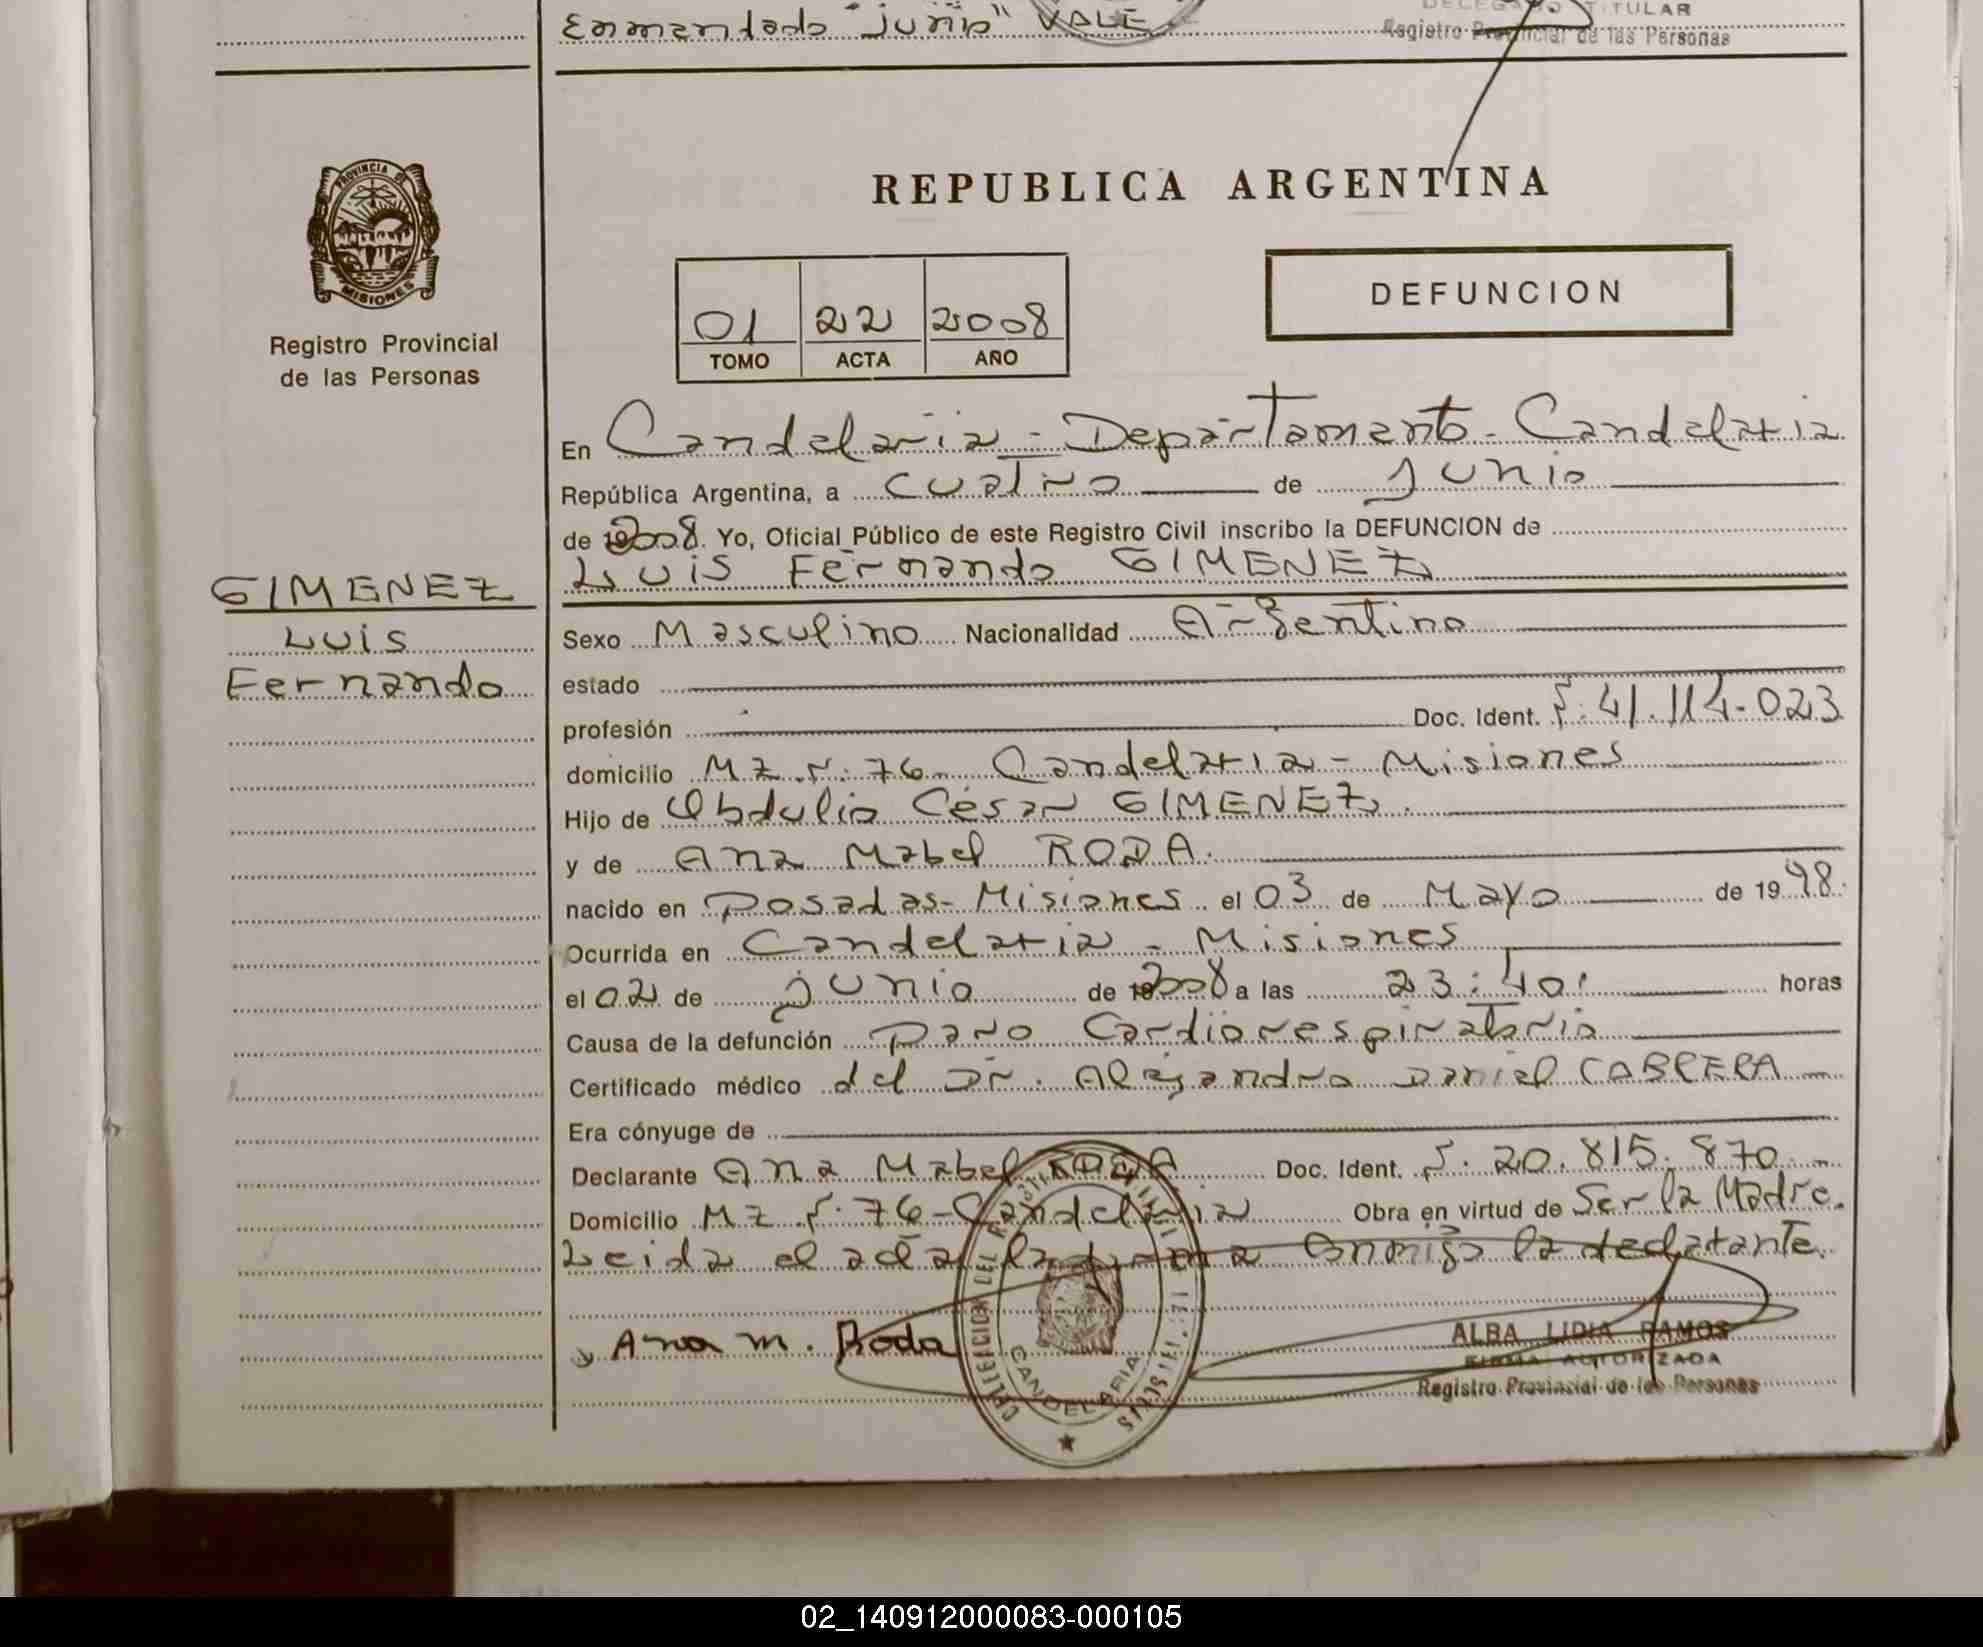 Enmendado "junio" VALE
DELEGADO TITULAR
Registro Provincial de las Personas
PROVINCIA DE
MISIONES
Registro Provincial
de las Personas
REPUBLICA ARGENTINA
01 22 2008
TOMO ACTA AÑO
DEFUNCION
En Candelaria - Departamento - Candelaria
República Argentina, a cuatro de Junio
de 2008. Yo, Oficial Público de este Registro Civil inscribo la DEFUNCION de
Luis Fernando GIMENEZ
GIMENEZ
Luis
Fernando
Sexo Masculino Nacionalidad Argentino
estado
profesión Doc. Ident. Nº: 41.114.023
domicilio MZ. Nº: 76 Candelaria - Misiones
Hijo de Obdulio César GIMENEZ.
y de Ana Mabel RODA.
nacido en Posadas - Misiones el 03 de Mayo de 1998.
Ocurrida en Candelaria - Misiones
el 02 de junio de 2008 a las 23:40. horas
Causa de la defunción Paro Cardiorespiratorio
Certificado médico del Dr. Alejandro Daniel CABRERA
Era cónyuge de
Declarante Ana Mabel RODA Doc. Ident. Nº. 20.815.870.-
Domicilio MZ Nº. 76 - Candelaria Obra en virtud de Ser la Madre.
Leida el acta la firma conmigo la declarante.
Ana M. Roda
CANDELARIA
ALBA LIDIA RAMOS
FIRMA AUTORIZADA
Registro Provincial de las Personas
02_140912000083-000105